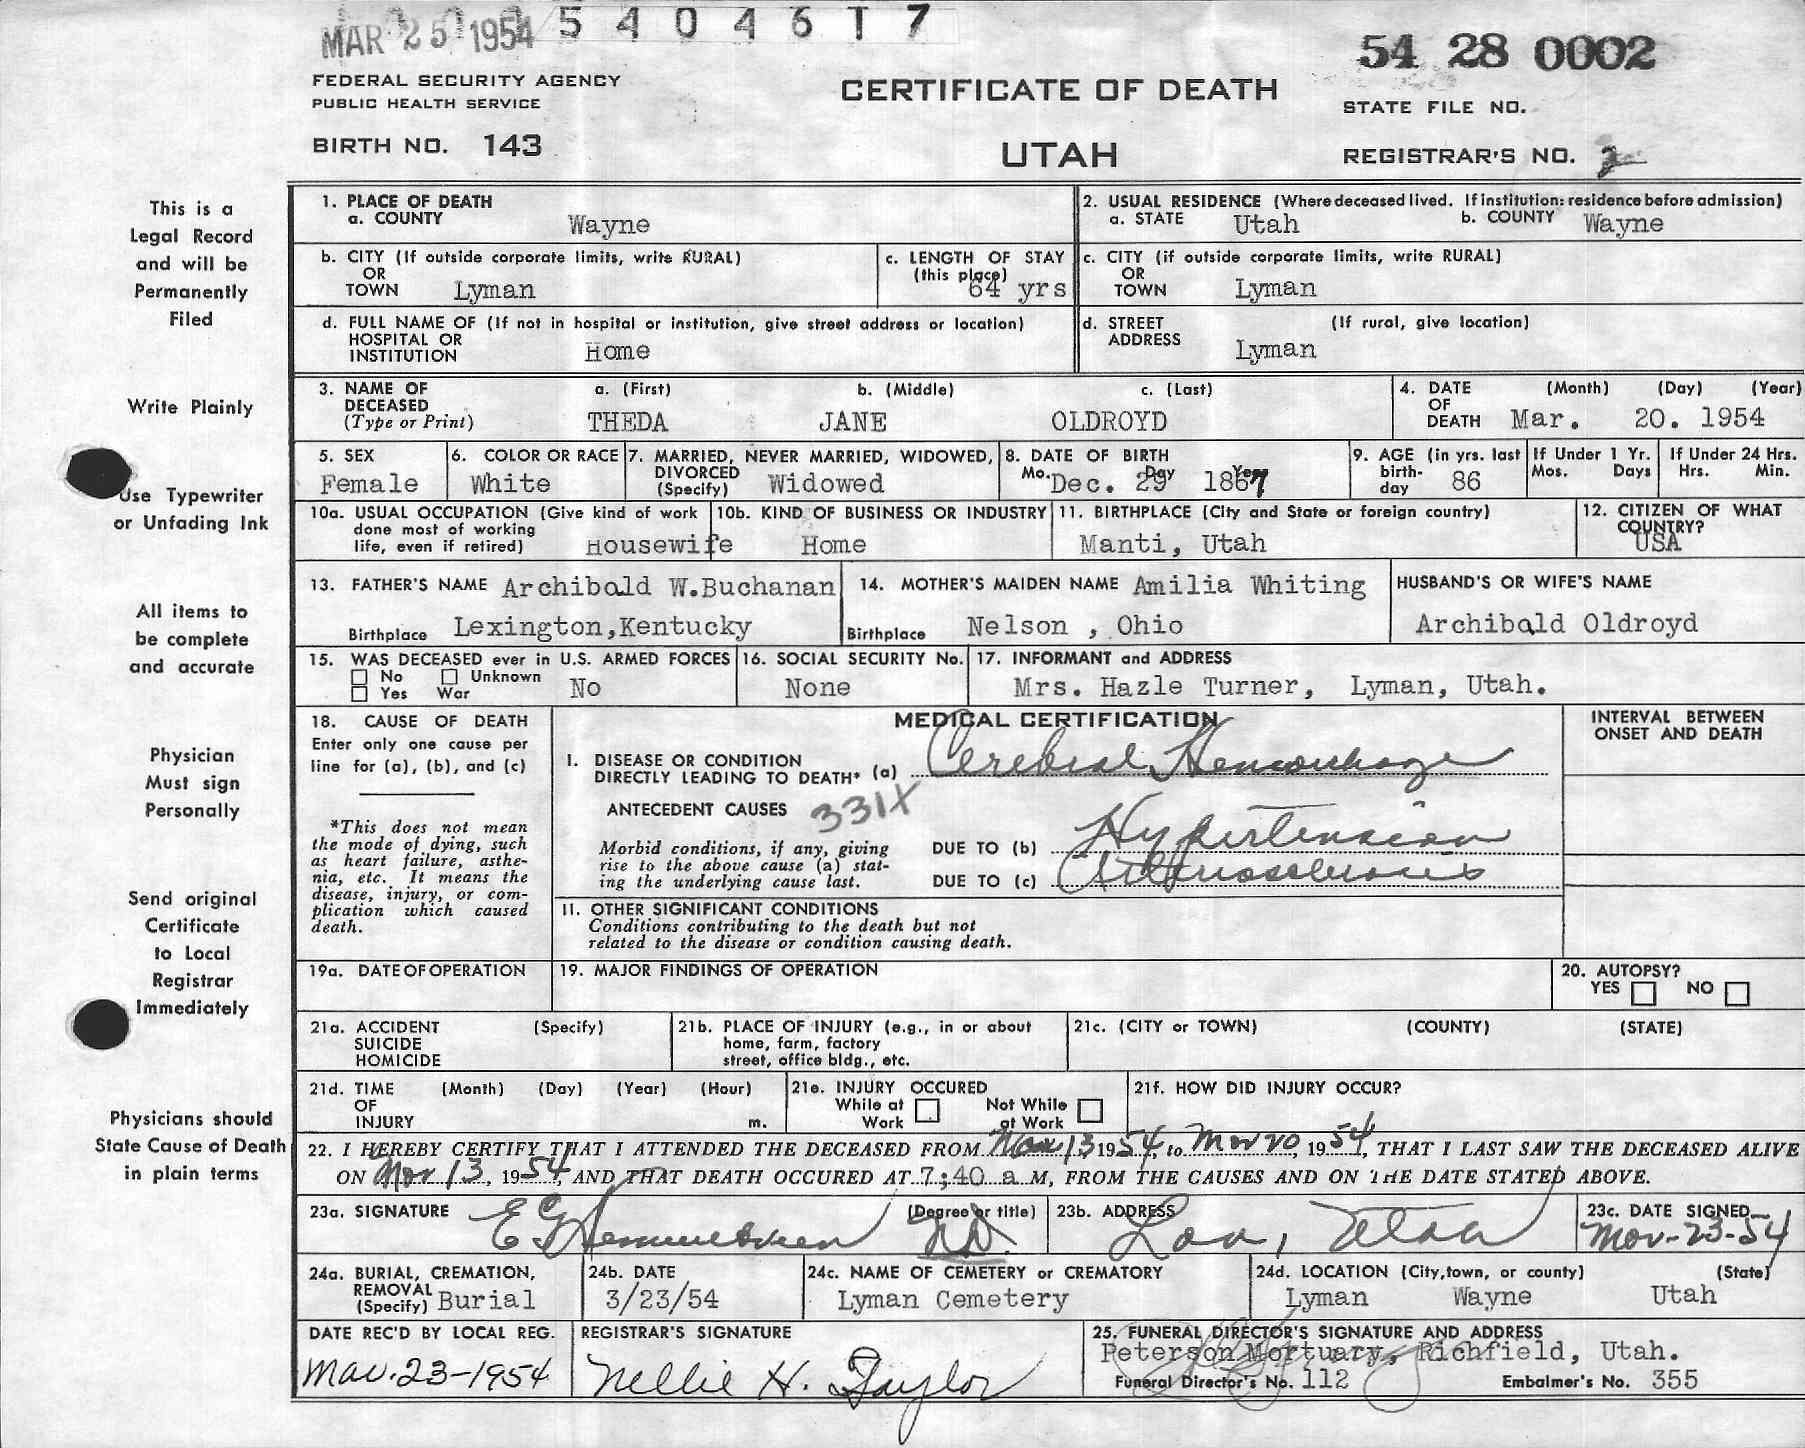 MAR 25 1954 5 4 0 4 6 1 7
54 28 0002
FEDERAL SECURITY AGENCY
PUBLIC HEALTH SERVICE
CERTIFICATE OF DEATH
STATE FILE NO.
BIRTH NO. 143
UTAH
REGISTRAR'S NO. 2
This is a
Legal Record
and will be
Permanently
Filed
Write Plainly
Use Typewriter
or Unfading Ink
All items to
be complete
and accurate
Physician
Must sign
Personally
Send original
Certificate
to Local
Registrar
Immediately
Physicians should
State Cause of Death
in plain terms
1. PLACE OF DEATH
a. COUNTY Wayne
2. USUAL RESIDENCE (Where deceased lived. If institution: residence before admission)
a. STATE Utah b. COUNTY Wayne
b. CITY (If outside corporate limits, write RURAL)
OR
TOWN Lyman
c. LENGTH OF STAY
(this place)
64 yrs
c. CITY (if outside corporate limits, write RURAL)
OR
TOWN Lyman
d. FULL NAME OF (If not in hospital or institution, give street address or location)
HOSPITAL OR
INSTITUTION Home
d. STREET (If rural, give location)
ADDRESS Lyman
3. NAME OF a. (First) b. (Middle) c. (Last)
DECEASED
(Type or Print) THEDA JANE OLDROYD
4. DATE (Month) (Day) (Year)
OF
DEATH Mar. 20. 1954
5. SEX
Female
6. COLOR OR RACE
White
7. MARRIED, NEVER MARRIED, WIDOWED,
DIVORCED
(Specify) Widowed
8. DATE OF BIRTH
Mo. Day Year
Dec. 29 1867
9. AGE (in yrs. last
birth-
day 86
If Under 1 Yr.
Mos. Days
If Under 24 Hrs.
Hrs. Min.
10a. USUAL OCCUPATION (Give kind of work
done most of working
life, even if retired) Housewife
10b. KIND OF BUSINESS OR INDUSTRY
Home
11. BIRTHPLACE (City and State or foreign country)
Manti, Utah
12. CITIZEN OF WHAT
COUNTRY?
USA
13. FATHER'S NAME Archibald W.Buchanan
Birthplace Lexington,Kentucky
14. MOTHER'S MAIDEN NAME Amilia Whiting
Birthplace Nelson , Ohio
HUSBAND'S OR WIFE'S NAME
Archibald Oldroyd
15. WAS DECEASED ever in U.S. ARMED FORCES
No Unknown
Yes War No
16. SOCIAL SECURITY No.
None
17. INFORMANT and ADDRESS
Mrs. Hazle Turner, Lyman, Utah.
18. CAUSE OF DEATH
Enter only one cause per
line for (a), (b), and (c)
*This does not mean
the mode of dying, such
as heart failure, asthe-
nia, etc. It means the
disease, injury, or com-
plication which caused
death.
MEDICAL CERTIFICATION
INTERVAL BETWEEN
ONSET AND DEATH
I. DISEASE OR CONDITION
DIRECTLY LEADING TO DEATH* (a) Cerebral Hemorrhage
ANTECEDENT CAUSES 331X
Morbid conditions, if any, giving
rise to the above cause (a) stat-
ing the underlying cause last.
DUE TO (b) Hypertension
DUE TO (c) Arteriosclerosis
11. OTHER SIGNIFICANT CONDITIONS
Conditions contributing to the death but not
related to the disease or condition causing death.
19a. DATE OF OPERATION
19. MAJOR FINDINGS OF OPERATION
20. AUTOPSY?
YES NO
21a. ACCIDENT (Specify)
SUICIDE
HOMICIDE
21b. PLACE OF INJURY (e.g., in or about
home, farm, factory
street, office bldg., etc.
21c. (CITY or TOWN) (COUNTY) (STATE)
21d. TIME (Month) (Day) (Year) (Hour)
OF
INJURY m.
21e. INJURY OCCURED
While at Not While
Work at Work
21f. HOW DID INJURY OCCUR?
22. I HEREBY CERTIFY THAT I ATTENDED THE DECEASED FROM Mar 13 1954, to Mar 20, 1954, THAT I LAST SAW THE DECEASED ALIVE
ON Mar 13, 1954, AND THAT DEATH OCCURED AT 7;40 a M, FROM THE CAUSES AND ON THE DATE STATED ABOVE.
23a. SIGNATURE (Degree or title)
M.D.
23b. ADDRESS
Loa, Utah
23c. DATE SIGNED
Mar-23-54
24a. BURIAL, CREMATION,
REMOVAL
(Specify) Burial
24b. DATE
3/23/54
24c. NAME OF CEMETERY or CREMATORY
Lyman Cemetery
24d. LOCATION (City, town, or county) (State)
Lyman Wayne Utah
DATE REC'D BY LOCAL REG.
Mar. 23-1954
REGISTRAR'S SIGNATURE
Nellie H. Taylor
25. FUNERAL DIRECTOR'S SIGNATURE AND ADDRESS
Peterson Mortuary, Richfield, Utah.
Funeral Director's No. 112 Embalmer's No. 355